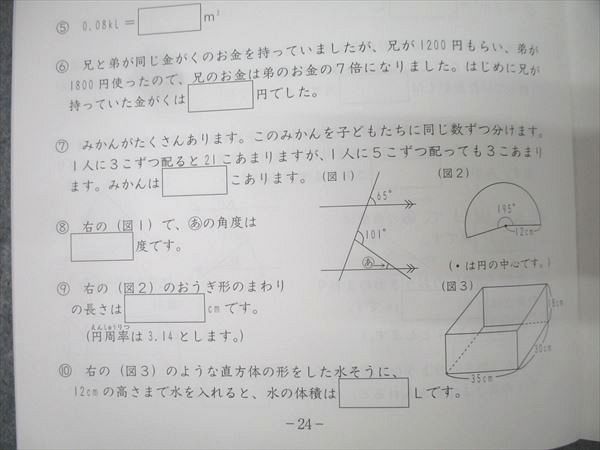 ⑤ 0.08kL＝ m³
⑥ 兄と弟が同じ金がくのお金を持っていましたが、兄が1200円もらい、弟が
1800円使ったので、兄のお金は弟のお金の7倍になりました。はじめに兄が
持っていた金がくは 円でした。
⑦ みかんがたくさんあります。このみかんを子どもたちに同じ数ずつ分けます。
1人に3こずつ配ると21こあまりますが、1人に5こずつ配っても3こあまり
ます。みかんは こあります。
(図1)
65°
101°
あ
(図2)
195°
12cm
(・は円の中心です。)
⑧ 右の（図1）で、あの角度は
度です。
⑨ 右の（図2）のおうぎ形のまわり
の長さは cmです。
えんしゅうりつ
(円周率は3.14とします。)
(図3)
18cm
30cm
35cm
⑩ 右の（図3）のような直方体の形をした水そうに、
12cmの高さまで水を入れると、水の体積は Lです。
－24－